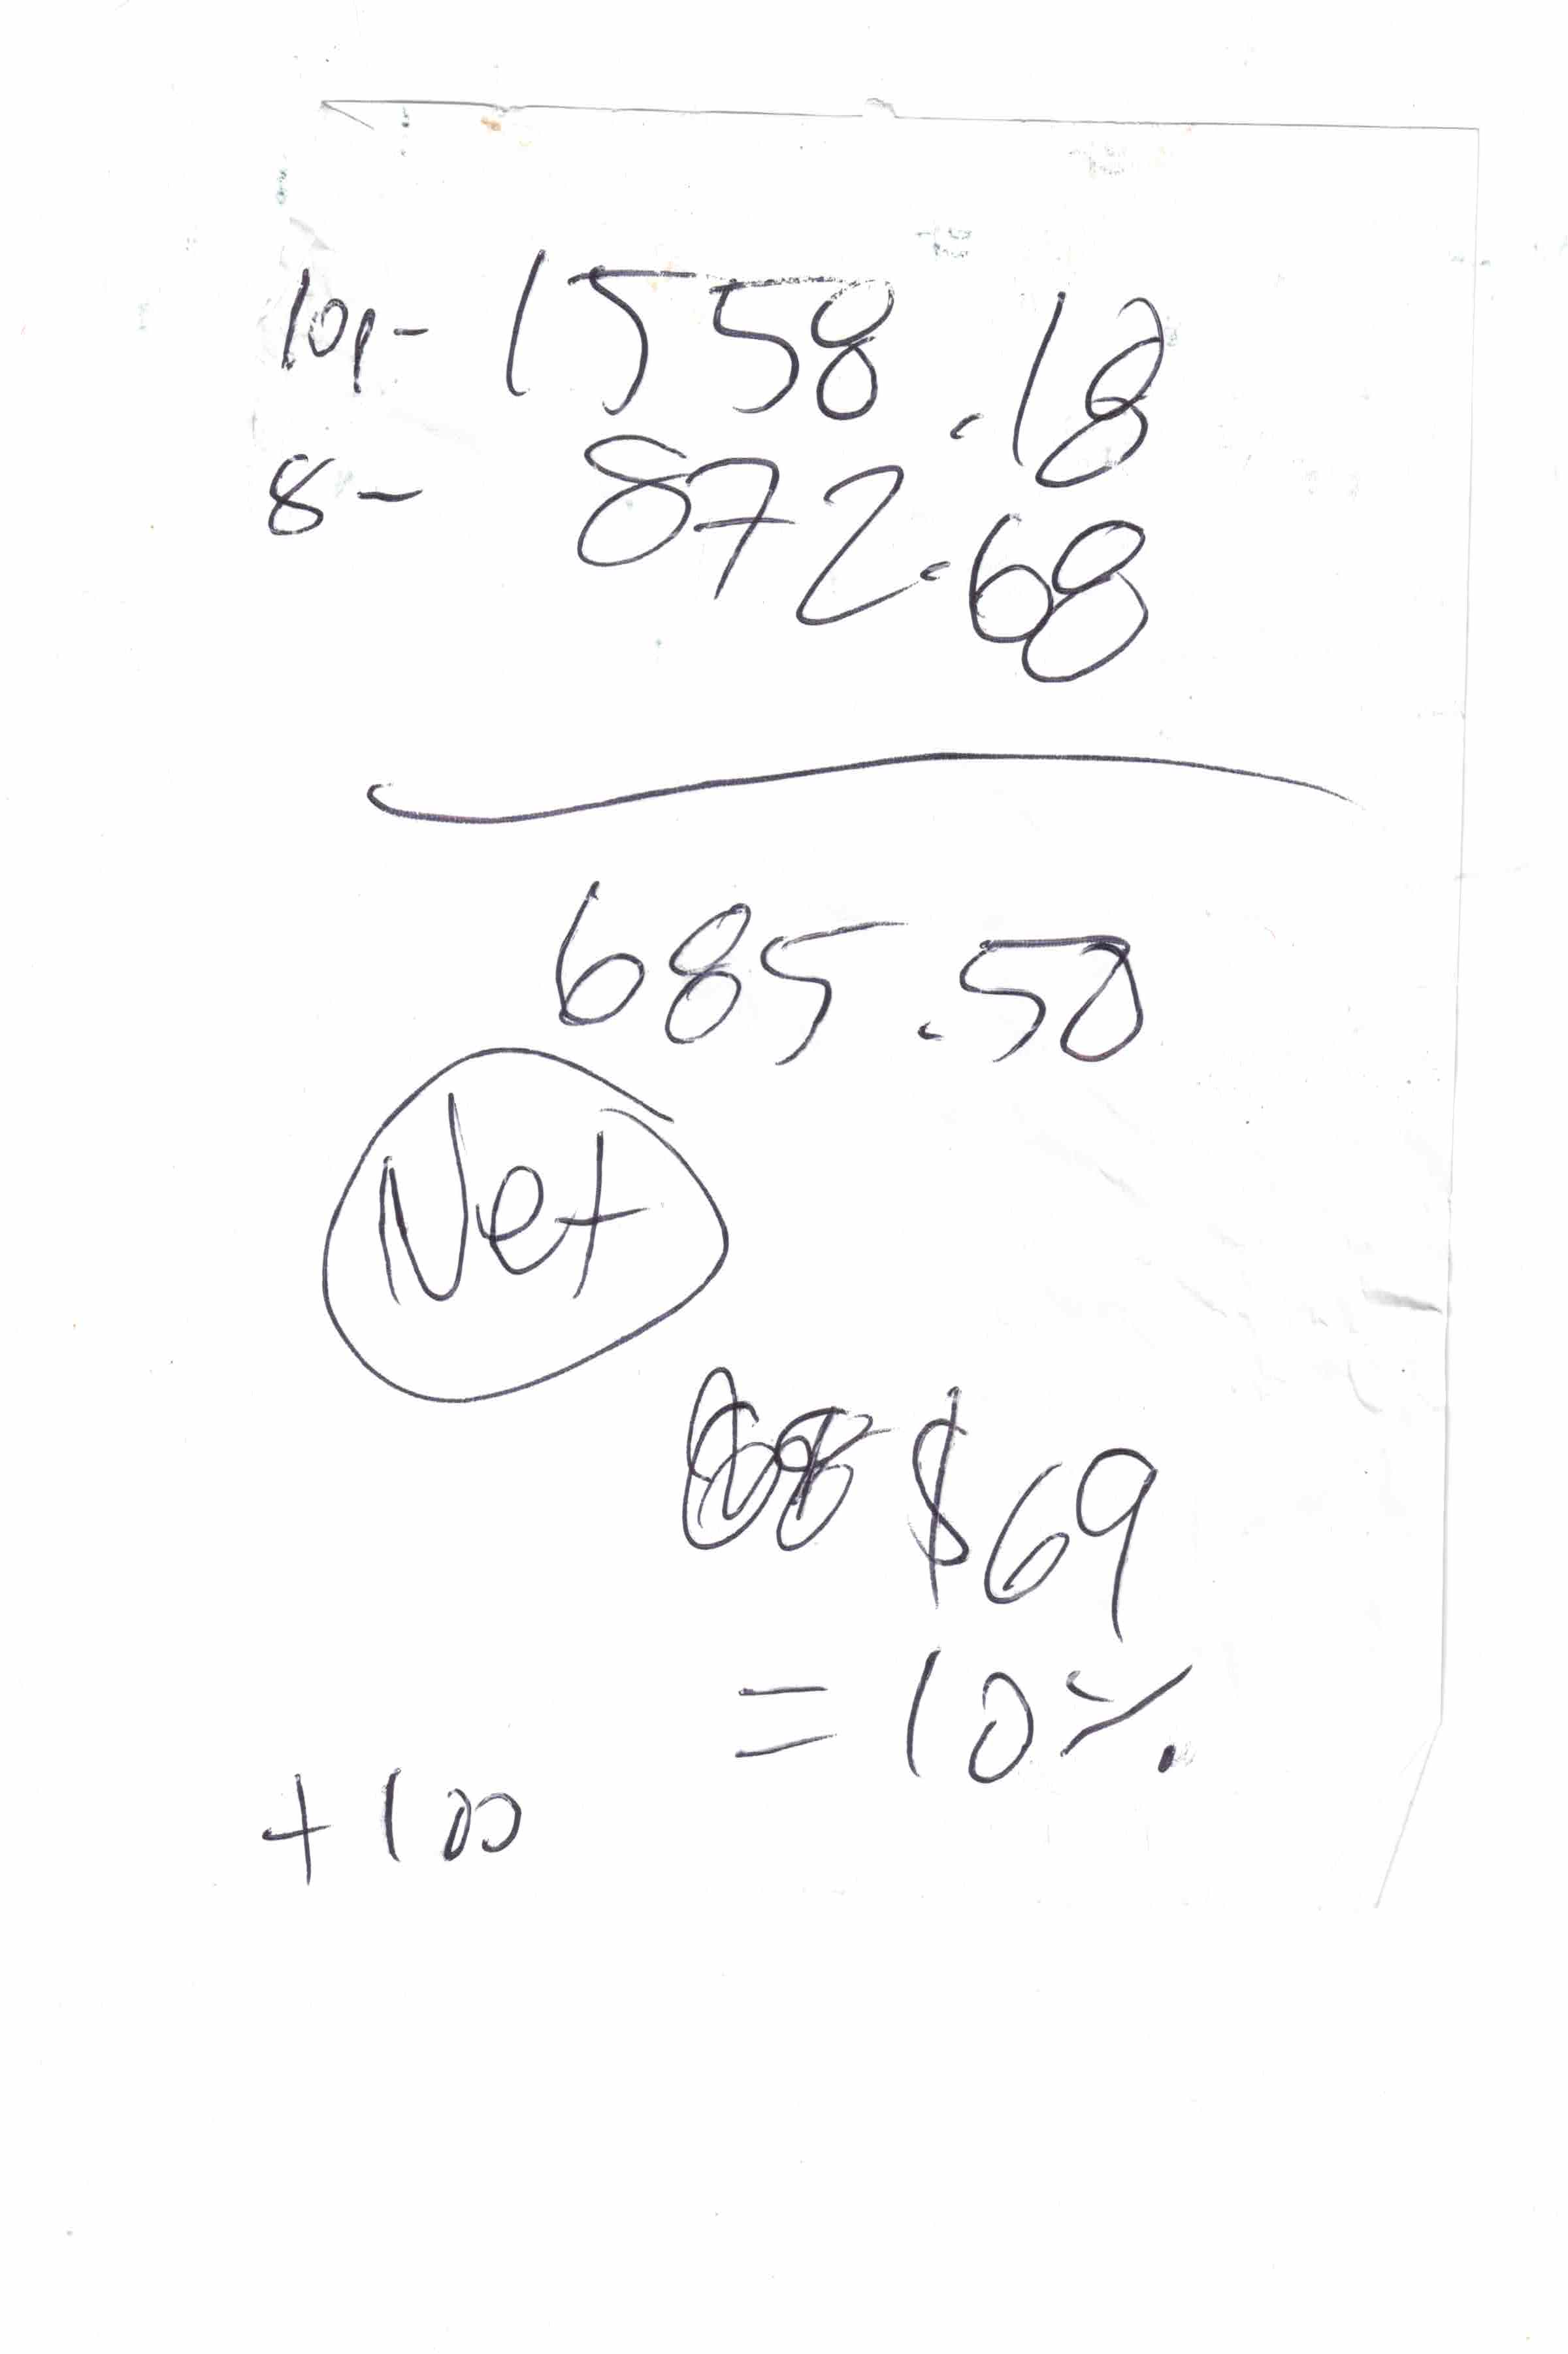 10p- 1558.18
8- 872.68
685.50
Net
$69
= 10%
+100